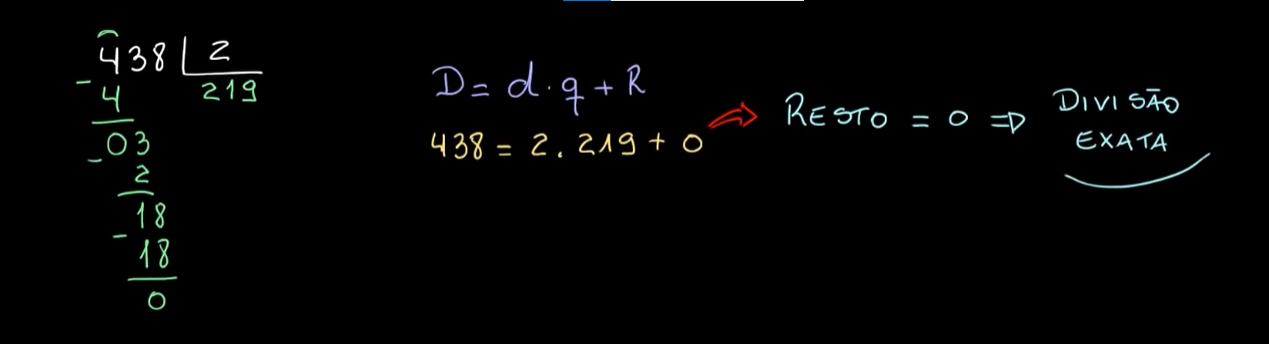 438 2
- 4 219
- 03
2
- 18
18
0
D = d . q + R
438 = 2 . 219 + 0
RESTO = 0 ⇒ DIVISÃO
EXATA